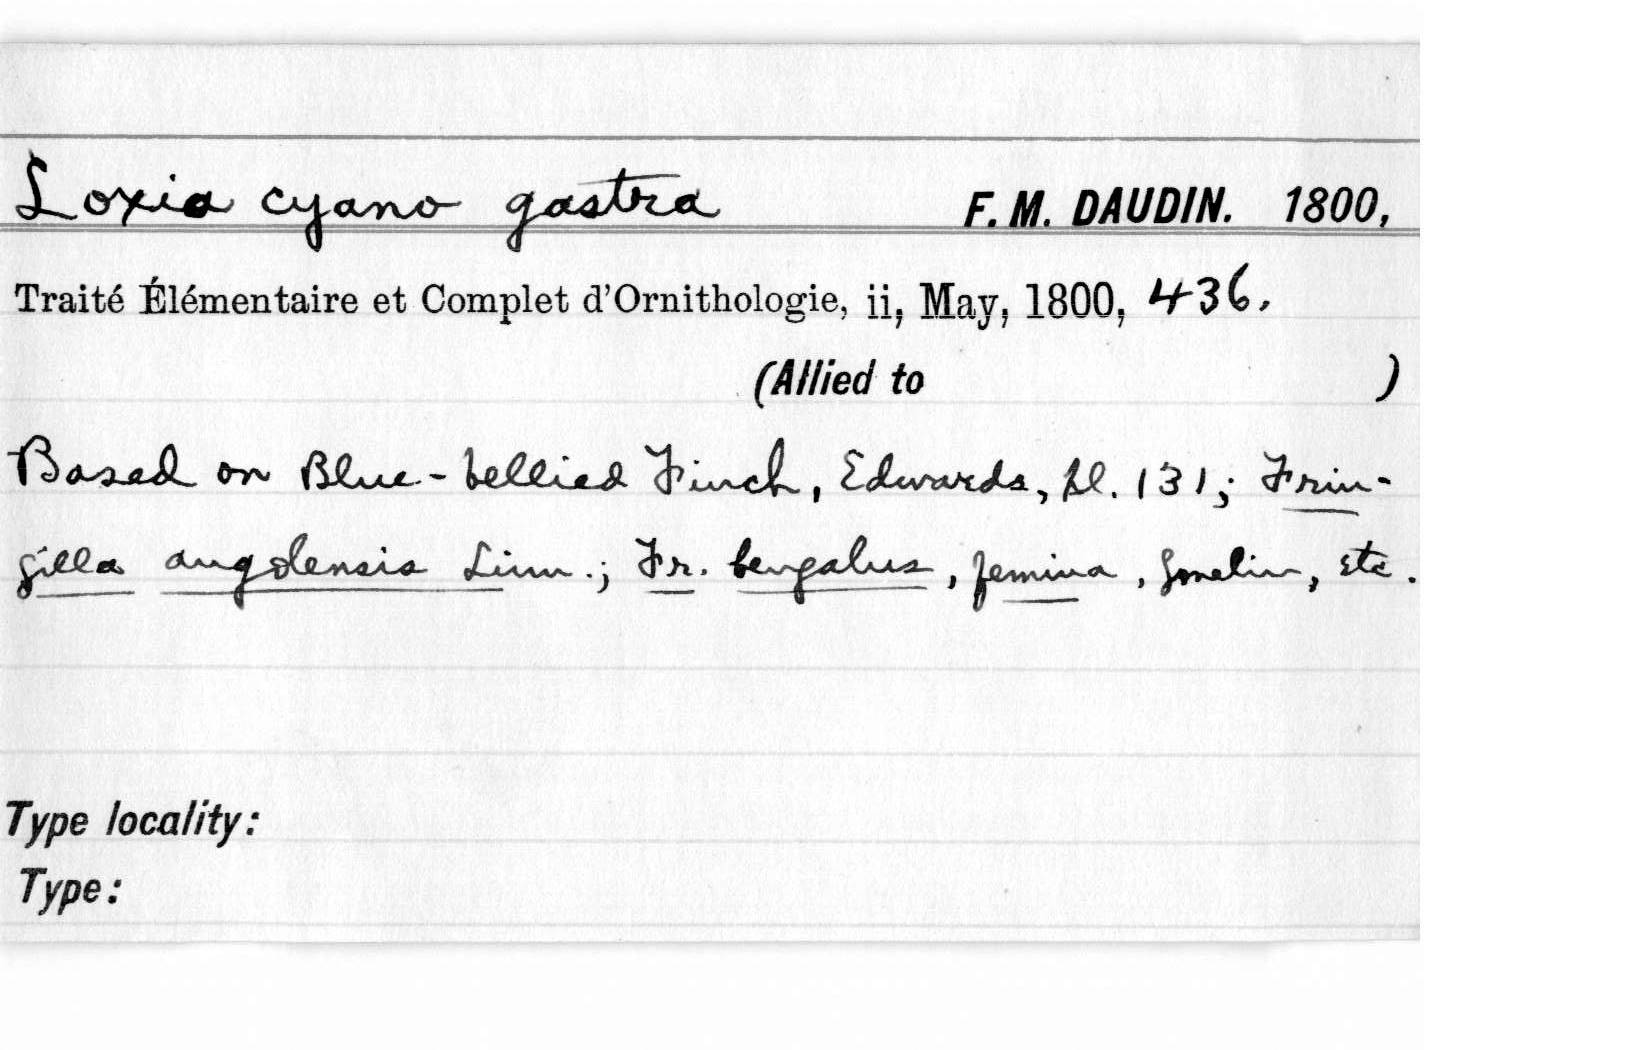 Loxia cyano gastra F. M. DAUDIN. 1800,
Traité Élémentaire et Complet d'Ornithologie, ii, May, 1800, 436.
(Allied to )
Based on Blue-bellied Finch, Edwards, pl. 131; Frin-
gilla angolensis Linn.; Fr. bengalus, femina, Gmelin, etc.
Type locality:
Type: